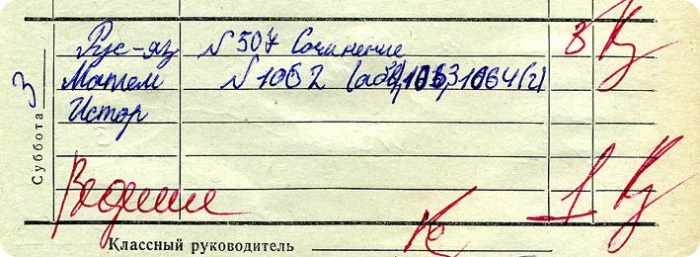 Суббота 3
Рус-яз №507 Сочинение 3
Матем №1062 (абв), 1063, 1064(г)
Истор
Ведение 1
Классный руководитель